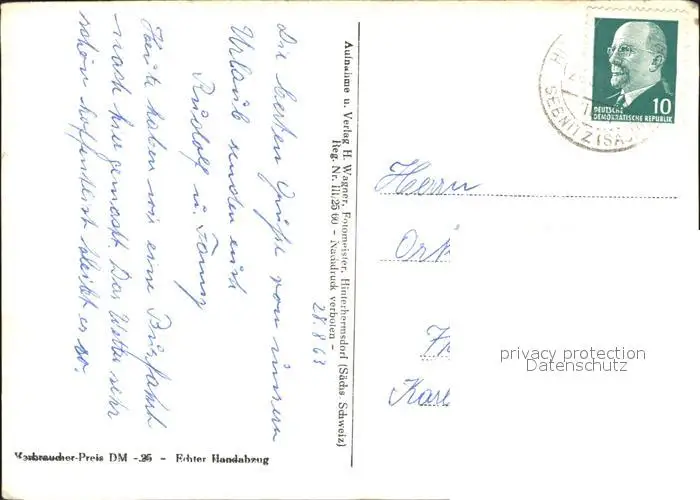 28.8.63
Die besten Grüße von unserm
Urlaub senden euch
Rudolf u. Fanny
Heute haben wir eine Busfahrt
nach hier gemacht. Das Wetter sehr
schön hoffentlich bleibt es so.
Aufnahme u. Verlag H. Wagner, Fotomeister, Hinterhermsdorf (Sächs. Schweiz)
Reg. Nr. III/25 60 – Nachdruck verboten –
Verbraucher-Preis DM -.25 – Echter Handabzug
SEBNITZ (SA
10
DEUTSCHE
DEMOKRATISCHE REPUBLIK
Herrn
privacy protection
Datenschutz